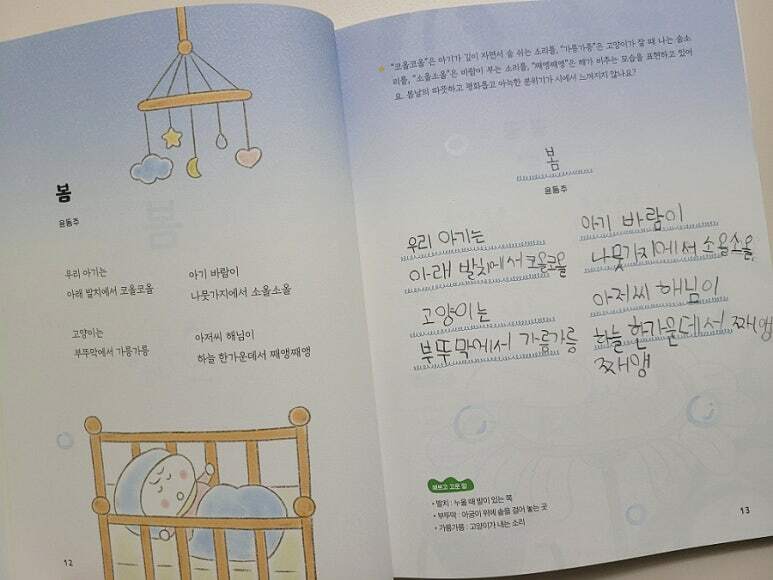 봄
윤동주
우리 아기는
아래 발치에서 코올코올
고양이는
부뚜막에서 가릉가릉
아기 바람이
나뭇가지에서 소올소올
아저씨 해님이
하늘 한가운데서 째앵째앵
12
"코올코올"은 아기가 깊이 자면서 숨 쉬는 소리를, "가릉가릉"은 고양이가 잘 때 나는 숨소
리를, "소올소올"은 바람이 부는 소리를, "째앵째앵"은 해가 비추는 모습을 표현하고 있어
요. 봄날의 따뜻하고 평화롭고 아늑한 분위기가 시에서 느껴지지 않나요?
봄
윤동주
우리 아기는
아래 발치에서 코올코올
고양이는
부뚜막에서 가릉가릉
아기 바람이
나뭇가지에서 소올소올
아저씨 해님이
하늘 한가운데서 째앵
째앵
곱고 고운 말
• 발치 : 누울 때 발이 있는 쪽
• 부뚜막 : 아궁이 위에 솥을 걸어 놓는 곳
• 가릉가릉 : 고양이가 내는 소리
13